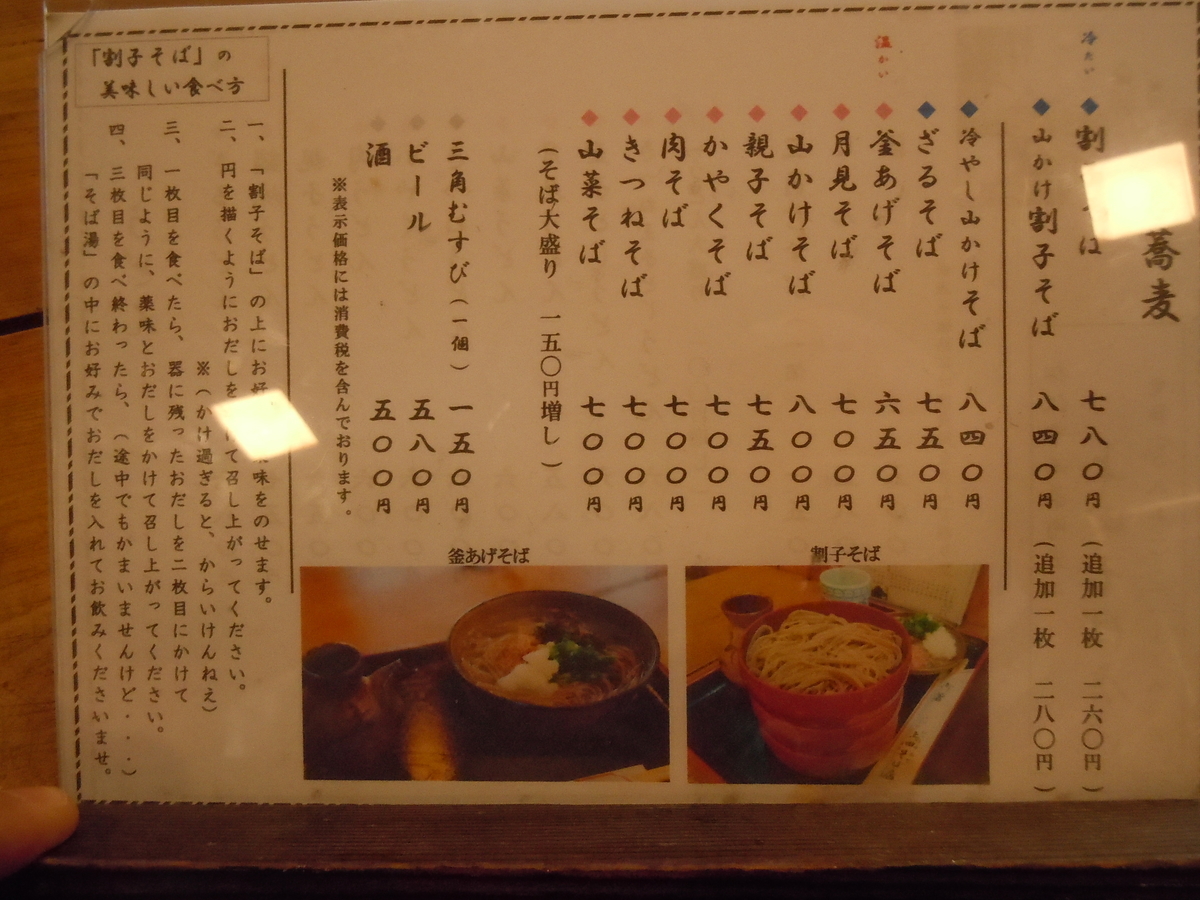 蕎麦
冷たい
割 ば 七八〇円 (追加一枚 二六〇円)
山かけ割子そば 八四〇円 (追加一枚 二八〇円)
冷やし山かけそば 八四〇円
ざるそば 七五〇円
温かい
釜あげそば 六五〇円
月見そば 七〇〇円
山かけそば 八〇〇円
親子そば 七五〇円
かやくそば 七〇〇円
肉そば 七〇〇円
きつねそば 七〇〇円
山菜そば 七〇〇円
(そば大盛り 一五〇円増し)
三角むすび(一個) 一五〇円
ビール 五八〇円
酒 五〇〇円
※表示価格には消費税を含んでおります。
割子そば
釜あげそば
「割子そば」の
美味しい食べ方
一、「割子そば」の上にお好 味をのせます。
二、円を描くようにおだしを て召し上がってください。
※(かけ過ぎると、からいけんねえ)
三、一枚目を食べたら、器に残ったおだしを二枚目にかけて
同じように、薬味とおだしをかけて召し上がってください。
四、三枚目を食べ終わったら、(途中でもかまいませんけど・・・)
「そば湯」の中にお好みでおだしを入れてお飲みくださいませ。